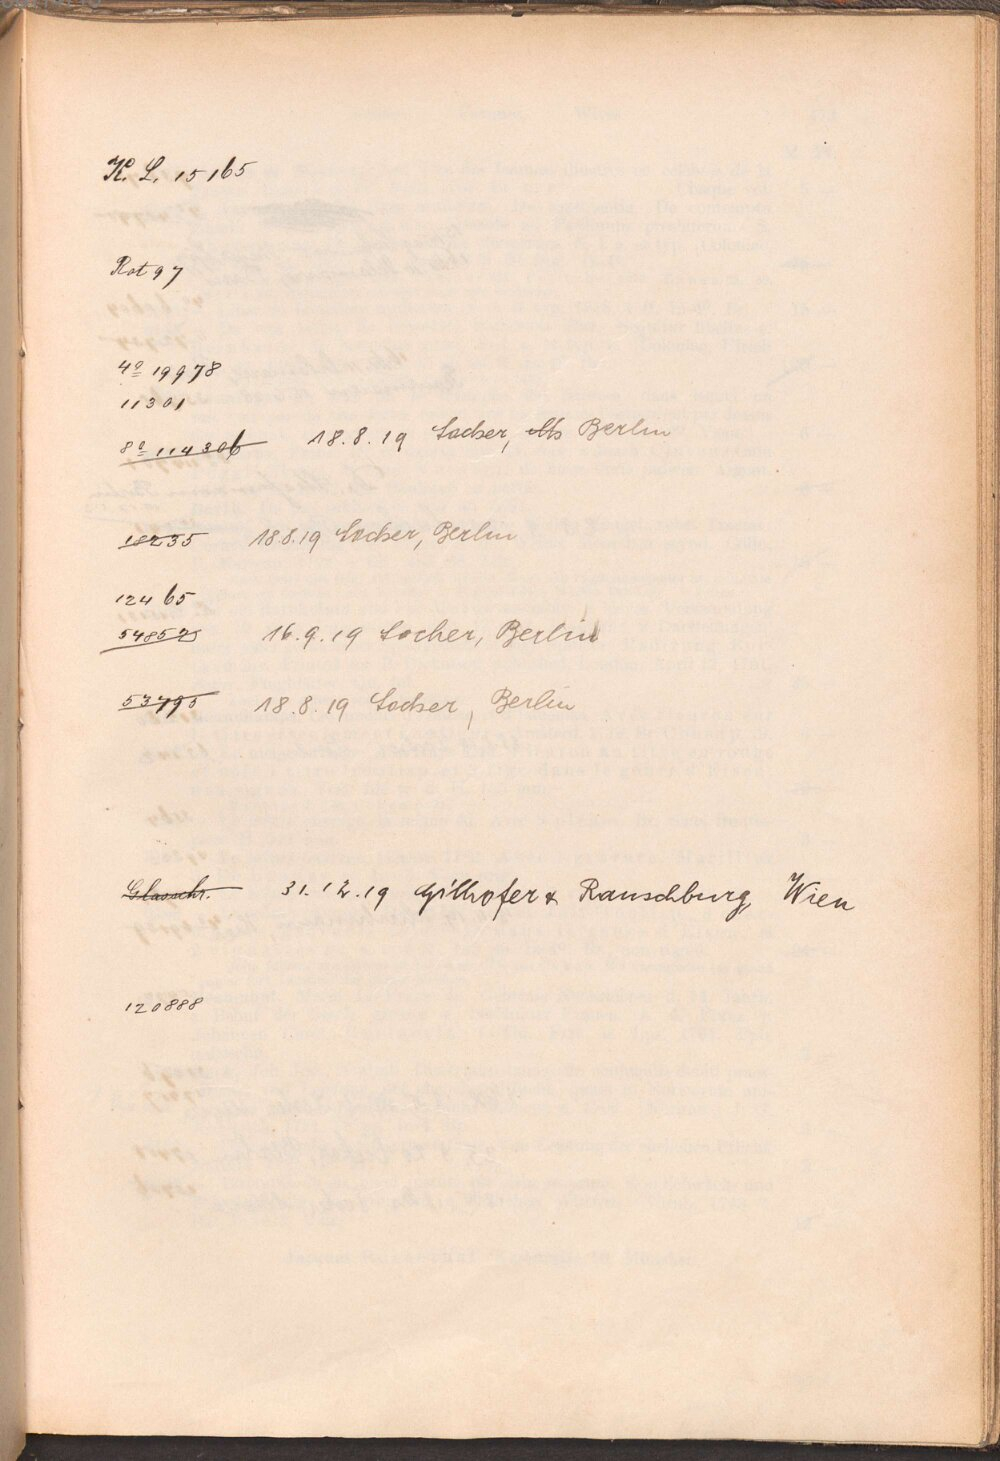 K. L. 15165
Rot 97
4º 19978
11301
8º 114306 18.8.19 Locher, Berlin
18235 18.8.19 Locher, Berlin
12465
54852 16.9.19 Locher, Berlin
53795 18.8.19 Locher, Berlin
Glasschr. 31.12.19 Gilhofer & Ranschburg, Wien
120888